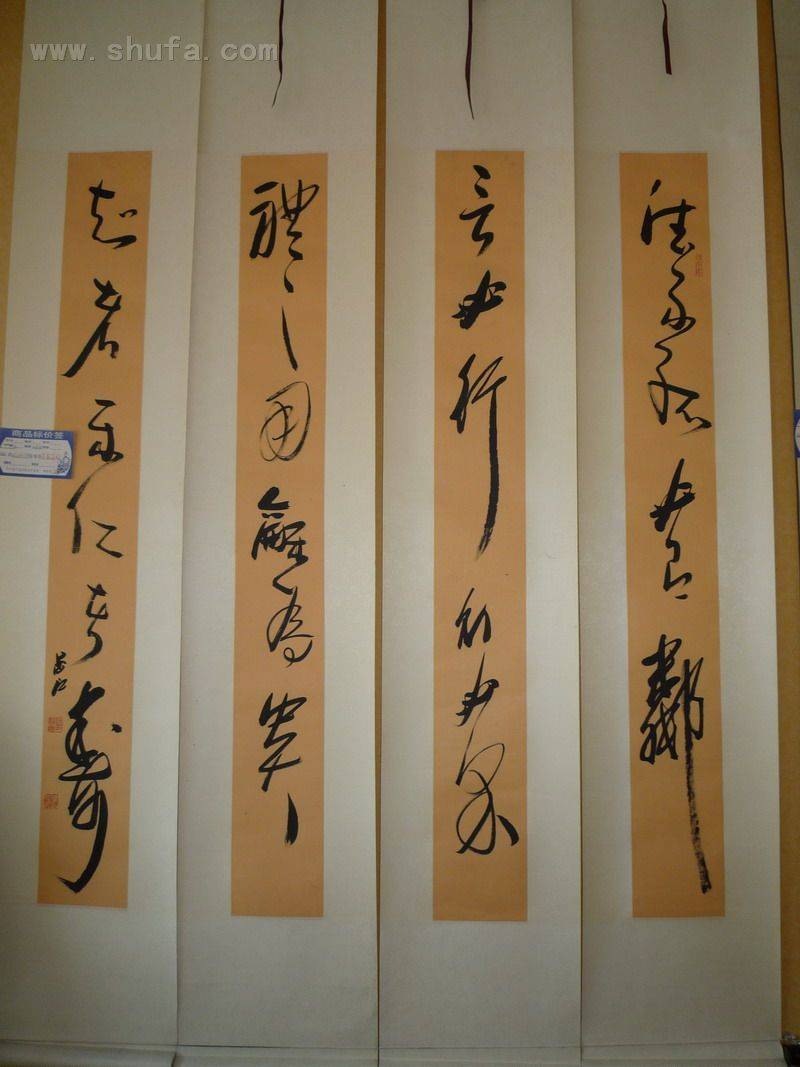 www.shufa.com
德不孤必有鄰
言必行行必果
禮之用龢為貴
知者樂仁者壽
商品标价签